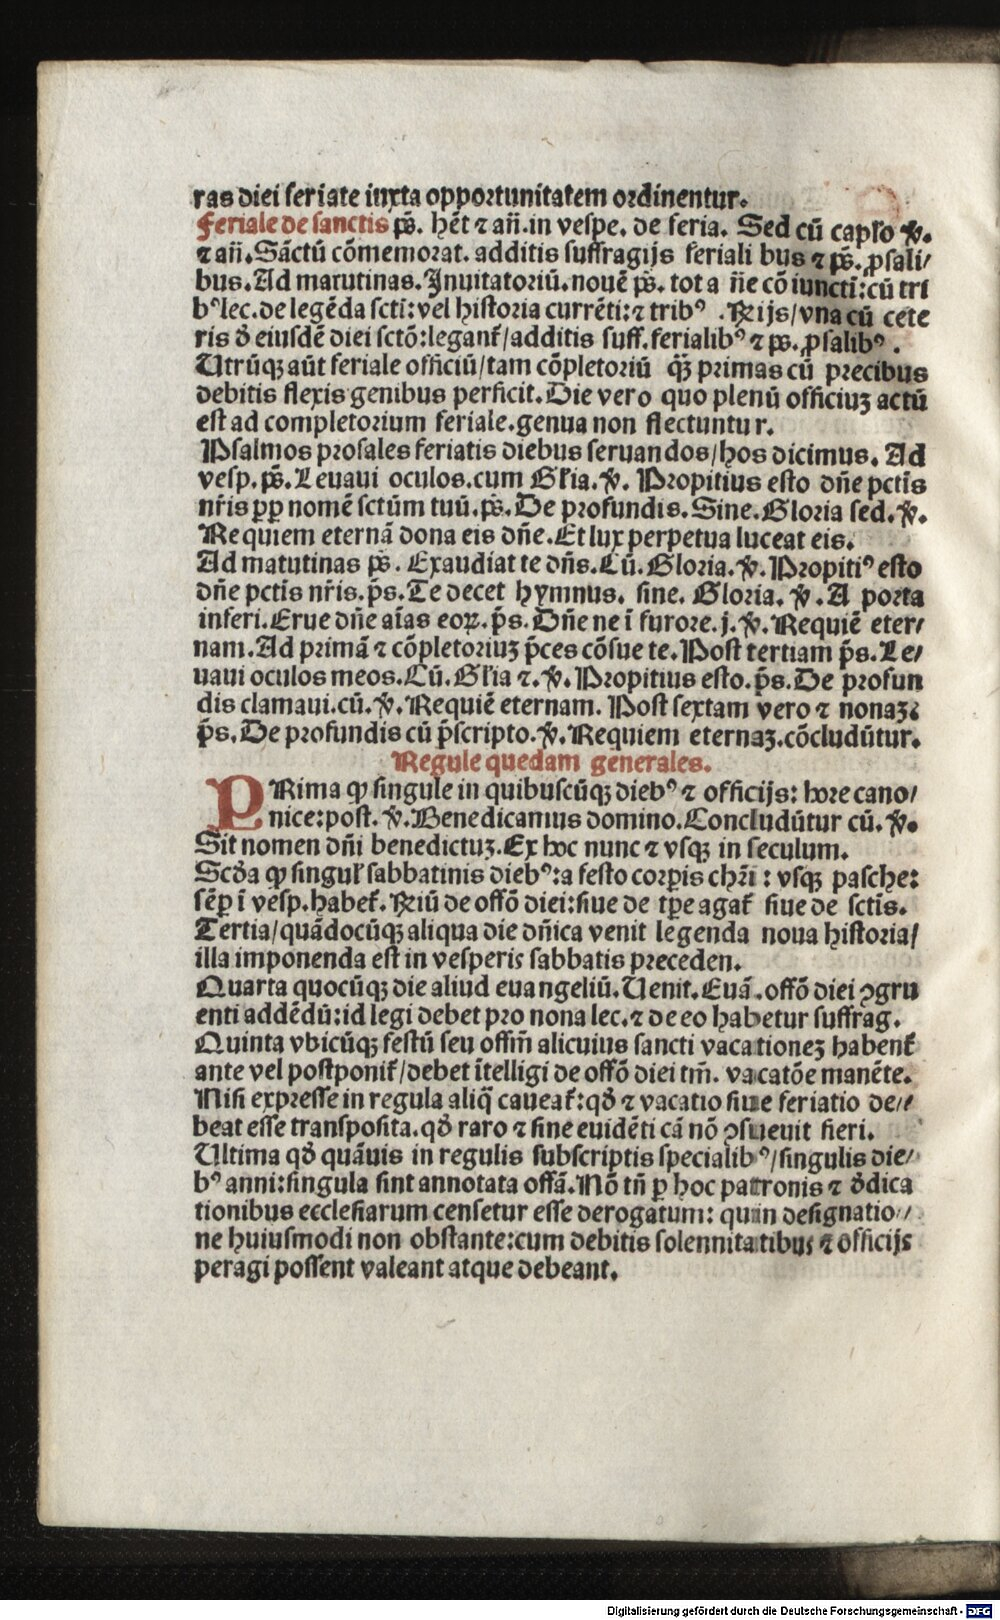 ras diei feriate iuxta opportunitatem ordinentur.
Feriale de sanctis p̄s. hēt ⁊ añ. in vespe. de feria. Sed cū caplo ℣.
⁊ añ. Sāctū cōmemorat. additis suffragijs feriali bus ⁊ p̄s. ꝓsali/
bus. Ad matutinas. Inuitatoriū. nouē p̄s. tot a ñe cō iunctī: cū tri
bꝰ lec. de legēda scti: vel historia currēti: ⁊ tribꝰ . Rijs/ vna cū cete
ris ð eiusdē diei sctō: legant̃/ additis suff. ferialibꝰ ⁊ p̄s. ꝓsalibꝰ .
Utrūqꝫ aūt feriale officiū/ tam cōpletoriū qꝫ̄ primas cū precibus
debitis flexis genibus perficit. Die vero quo plenū officiuꝫ actū
est ad completorium feriale. genua non flectuntur.
Psalmos prosales feriatis diebus seruandos/ hos dicimus. Ad
vesp. p̄s. Leuaui oculos. cum Glia. ℣. Propitius esto dñe pctīs
nr̃is ꝓp nomē sctūm tuū. p̄s. De profundis. Sine. Gloria sed. ℣.
Requiem eternā dona eis dñe. Et lux perpetua luceat eis.
Ad matutinas p̄s. Exaudiat te dñs. Cū. Gloria. ℣. Propitiꝰ esto
dñe pctīs nr̃is. p̄s. Te decet hymnus. sine. Gloria. ℣. A porta
inferi. Erue dñe aīas eoꝝ. p̄s. Dñe ne ī furore. j. ℣. Requiē eter/
nam. Ad primā ⁊ cōpletoriuꝫ p̄ces cōsue te. Post tertiam p̄s. Le/
uaui oculos meos. Cū. Glia ⁊. ℣. Propitius esto. p̄s. De profun
dis clamaui. cū. ℣. Requiē eternam. Post sextam vero ⁊ nonaꝫ:
p̄s. De profundis cū p̄scripto. ℣. Requiem eternaꝫ. cōcludūtur.
Regule quedam generales.
PRima ꝙ singule in quibuscūqꝫ diebꝰ ⁊ officijs: hore cano/
nice: post. ℣. Benedicamus domino. Concludūtur cū. ℣.
Sit nomen dñi benedictuꝫ. Ex hoc nunc ⁊ vsqꝫ in seculum.
Scða ꝙ singul̃ sabbatinis diebꝰ: a festo corꝑis chr̄i: vsqꝫ pasche:
sēꝑ ī vesp. habet̃. Riū de offō diei: siue de tꝑe agat̃ siue de sctīs.
Tertia/ quādocūqꝫ aliqua die dñica venit legenda noua historia/
illa imponenda est in vesperis sabbatis preceden.
Quarta quocūqꝫ die aliud euangeliū. Uenit. Euā. offō diei ꝯgru
enti addēdū: id legi debet pro nona lec. ⁊ de eo habetur suffrag.
Quinta vbicūqꝫ festū seu offm̄ alicuius sancti vacationeꝫ habent̃
ante vel postponit̃/ debet ītelligi de offō diei tm̄. vacatōe manēte.
Nisi expresse in regula aliq̄ caueat̃: qð ⁊ vacatio siue feriatio de//
beat esse transposita. qð raro ⁊ sine euidēti cā nō ꝯsueuit fieri.
Ultima qð quāuis in regulis subscriptis specialibꝰ/ singulis die/
bꝰ anni: singula sint annotata offā. Nō tñ ꝑ hoc patronis ⁊ ðdica
tionibus ecclesiarum censetur esse derogatum: quin designatio//
ne huiusmodi non obstante: cum debitis solennitatibus ⁊ officijs
peragi possent valeant atque debeant.
Digitalisierung gefördert durch die Deutsche Forschungsgemeinschaft - DFG